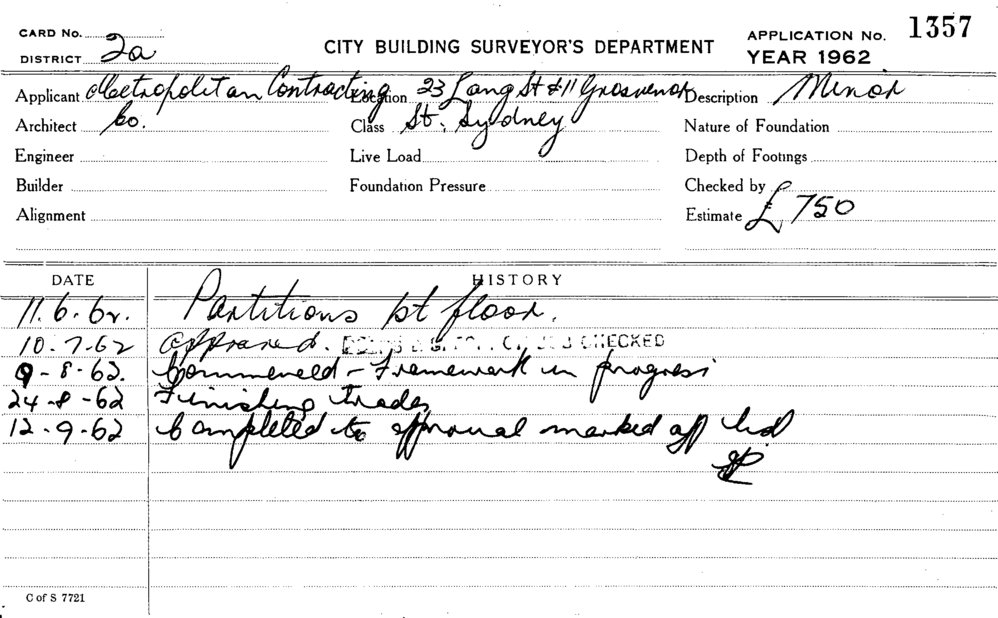 CARD No. 2a
DISTRICT
CITY BUILDING SURVEYOR'S DEPARTMENT
APPLICATION No. 1357
YEAR 1962
Applicant Metropolitan Contracting Location 23 Lang St & 11 Grosvenor Description Minor
Architect Co. Class St. Sydney Nature of Foundation
Engineer Live Load Depth of Footings
Builder Foundation Pressure Checked by
Alignment Estimate £750
DATE HISTORY
11.6.62. Partitions 1st floor.
10.7.62 approved. CHECKED
9-8-62. Commenced - Framework in progress
24-8-62 Finishing trades
12-9-62 Completed to approval marked off
C of S 7721